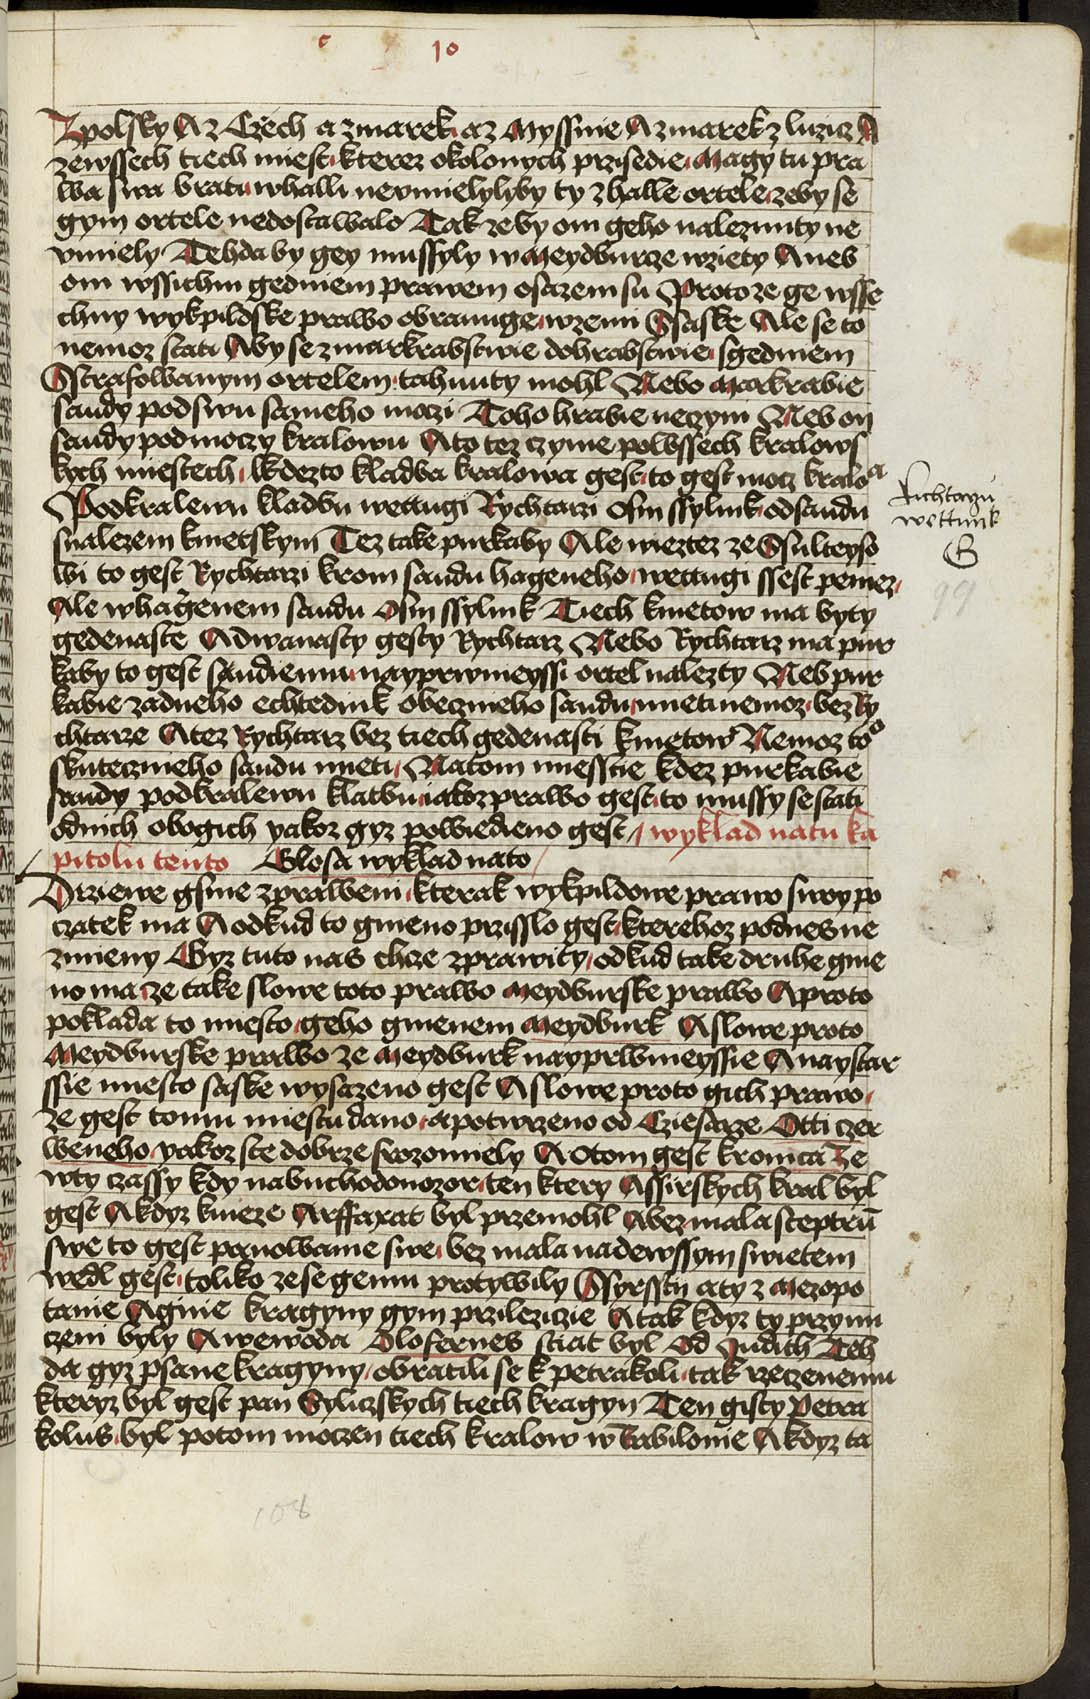 10
Zpolsky A z Czech a zmarek a z Myssnie A zmarek z luzicz A
zewssech tiech miest kterez okolonych przisedie Magy tu pra
wa swa brati whalli neumielylyby ty z halle ortele zeby se
gym ortele nedostawalo Tak ze by oni geho naleznuty ne
vmiely Tehda by gey mussyly w Meydburcze wziety Aneb
oni wssichni gedniem prawem osazeni su Protoze ge wsse
chny wykpildske prawo obranuge wzemi Saske Ale se to
nemoz stati Aby se zmarkrabstwie dohrabstwie sgedniem
Sstrafowanym ortelem tahnuty mohl Nebo Markrabie
saudy pod swu sameho moczi Toho hrabie neczyni Neb on
saudy podmoczy kralowu A to tez czynie powssech kralows
kych miestech kdezto kladba kralowa gest to gest mocz kralo a
Pod kralewu kladbu wettugi Rychtarzi osm ssylink odsaudu
snalezem kmetskym Tez take purkaby Ale wieztez ze Sulteyso
wi to gest Rychtarzi krom saudu hageneho wettugi ssest peniez
Ale whagenem saudu Osm ssylink Tiech kmetow ma byty
gedenaste A dwanasty gesty Rychtarz Nebo Rychtarz ma pur
kaby to gest saudiemu nayprwnieyssi ortel nalezty Neb pur
kabie zadneho echtednik obeczneho saudu mieti nemoz bez Ry
chtarze A tez Rychtarz bez tiech gedenasti kmetow Nemoz to o
skuteczneho saudu mieti Natom miesstie kdez purkabie
saudy podkralewu klatbu iakoz prawo gest to mussy se stati
odnich obogich yakoz gyz powiedieno gest wyklad natu ka
pitolu tento Glosa wyklad nato
Drziewe gsme zpraweni kterak wykpildowe prawo swoy po
czatek ma A odkud to gmeno przisslo gest kterehoz podnes ne
zmieny Gyz tuto nas chcze zprawity odkud take druhe gme
no ma ze take slowe toto prawo Meydburske prawo A proto
poklada to miesto geho gmenem Meydburk A slowe proto
Meydburske prawo ze Meydburk nayprwnieyssie A naystar
ssie miesto saske wysazeno gest A slowe proto gich prawo
ze gest tomu miestu dano a potwrzeno od Cziesarze Otti czer
weneho yakoz ste dobrze srozomiely A o tom gest kronica Ze
wty czassy kdy nabuchodonozor ten ktery Assirskych kral byl
gest A kdyz knieze Arffaxat byl przemohl A bez mala sceptru
swe to gest panowanie swe bez mala nadewssym swietem
wedl gest toliko ze se gemu protywily Ssyrssti a ty z Mezopo
tanie A gine kragyny gym przileziczie A tak kdyz ty przynu
czeni byly A wewoda Olofernes stiat byl Od Judich Teh
da gyz psane kragyny obratili se k petrakoli tak rzeczenemu
kteryz byl gest pan Syliczskych tiech kragyn Ten gisty Petra
kolus byl potom moczen tiech kralow w Babilonie A kdyz ta
Richtarzu
wettunk
B
99
108